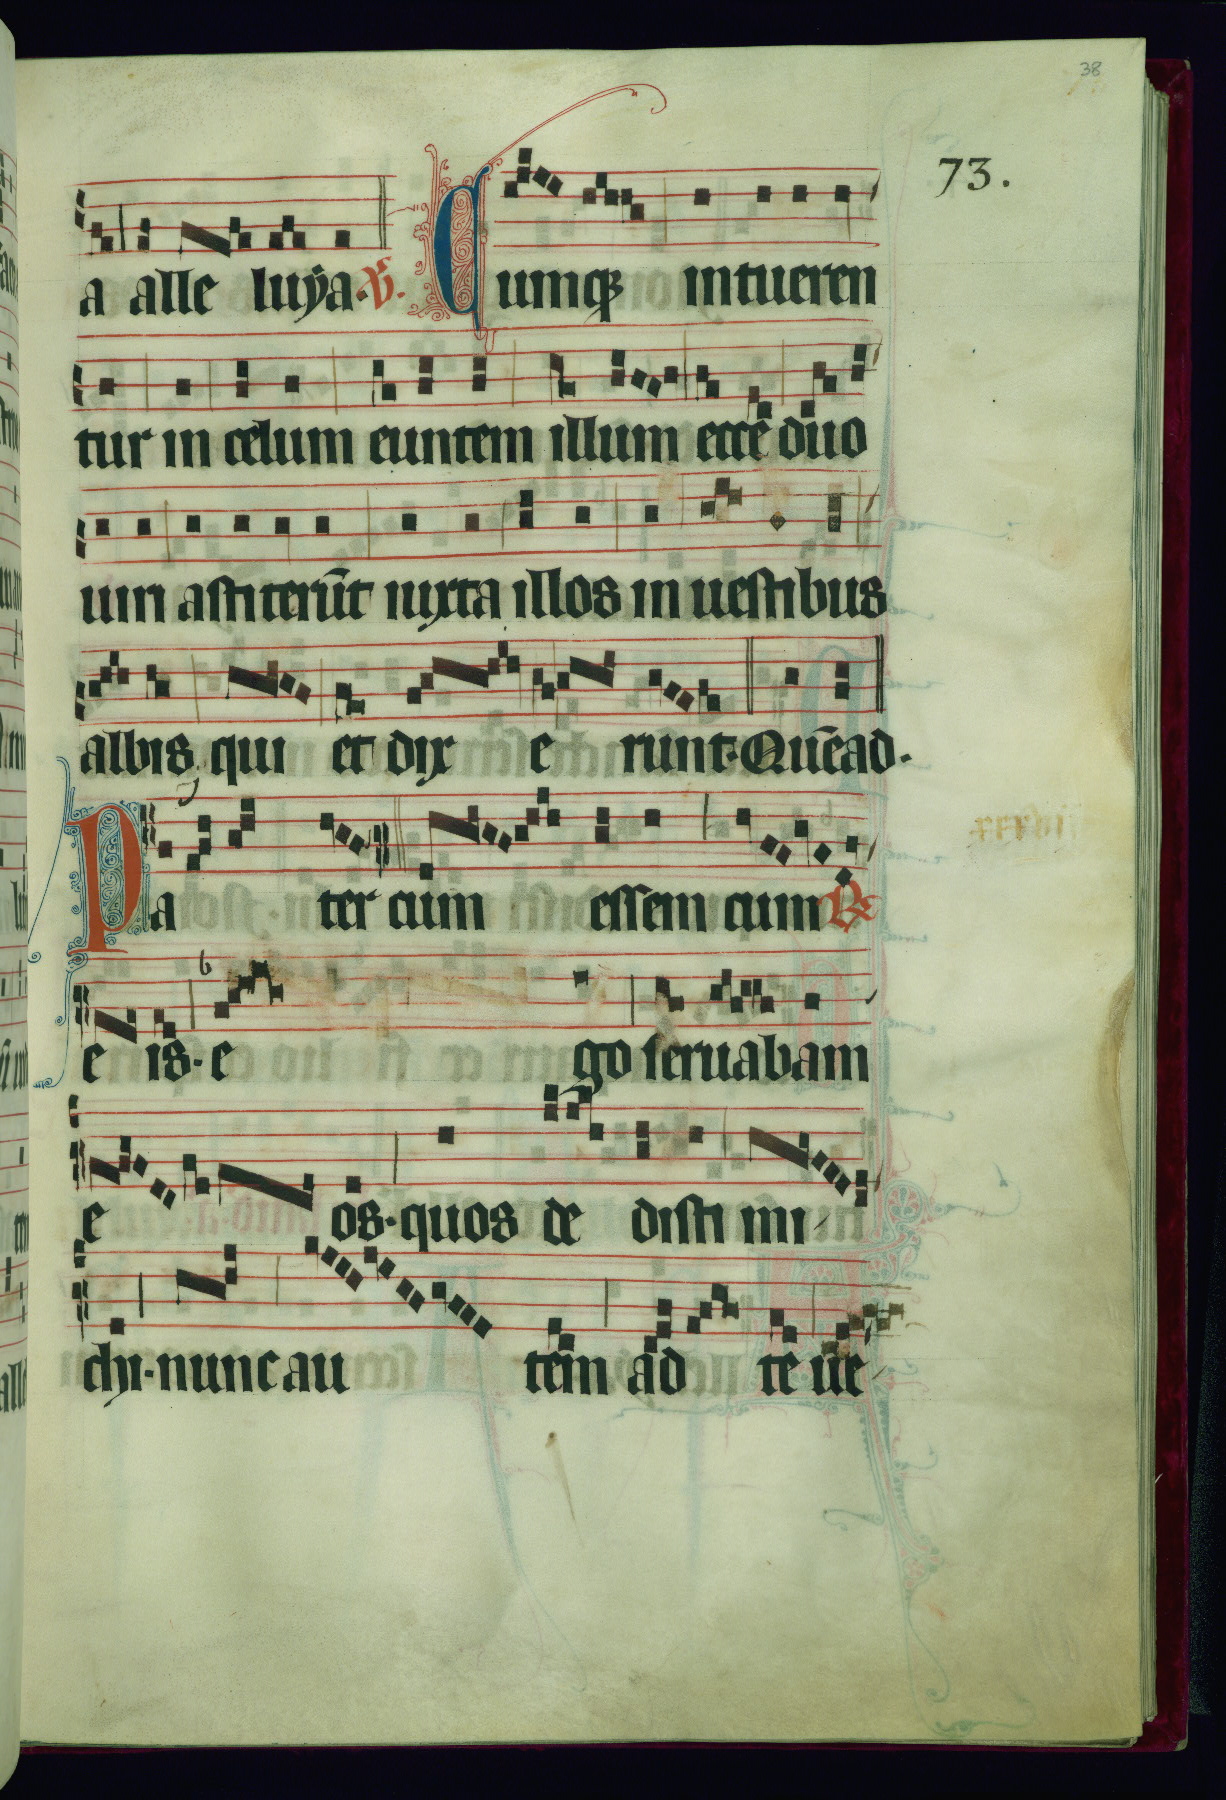 38
73.
a alle luÿa. V. Cumqȝ intueren
tur in celum euntem illum ecce duo
uiri astiterūt iuxta illos in uestibus
albis qui et dix e runt. Quēad.
Pa ter cum essem cum R
e is. e go seruabam
e os. quos de disti mi
chi. nunc au tem ad te ue